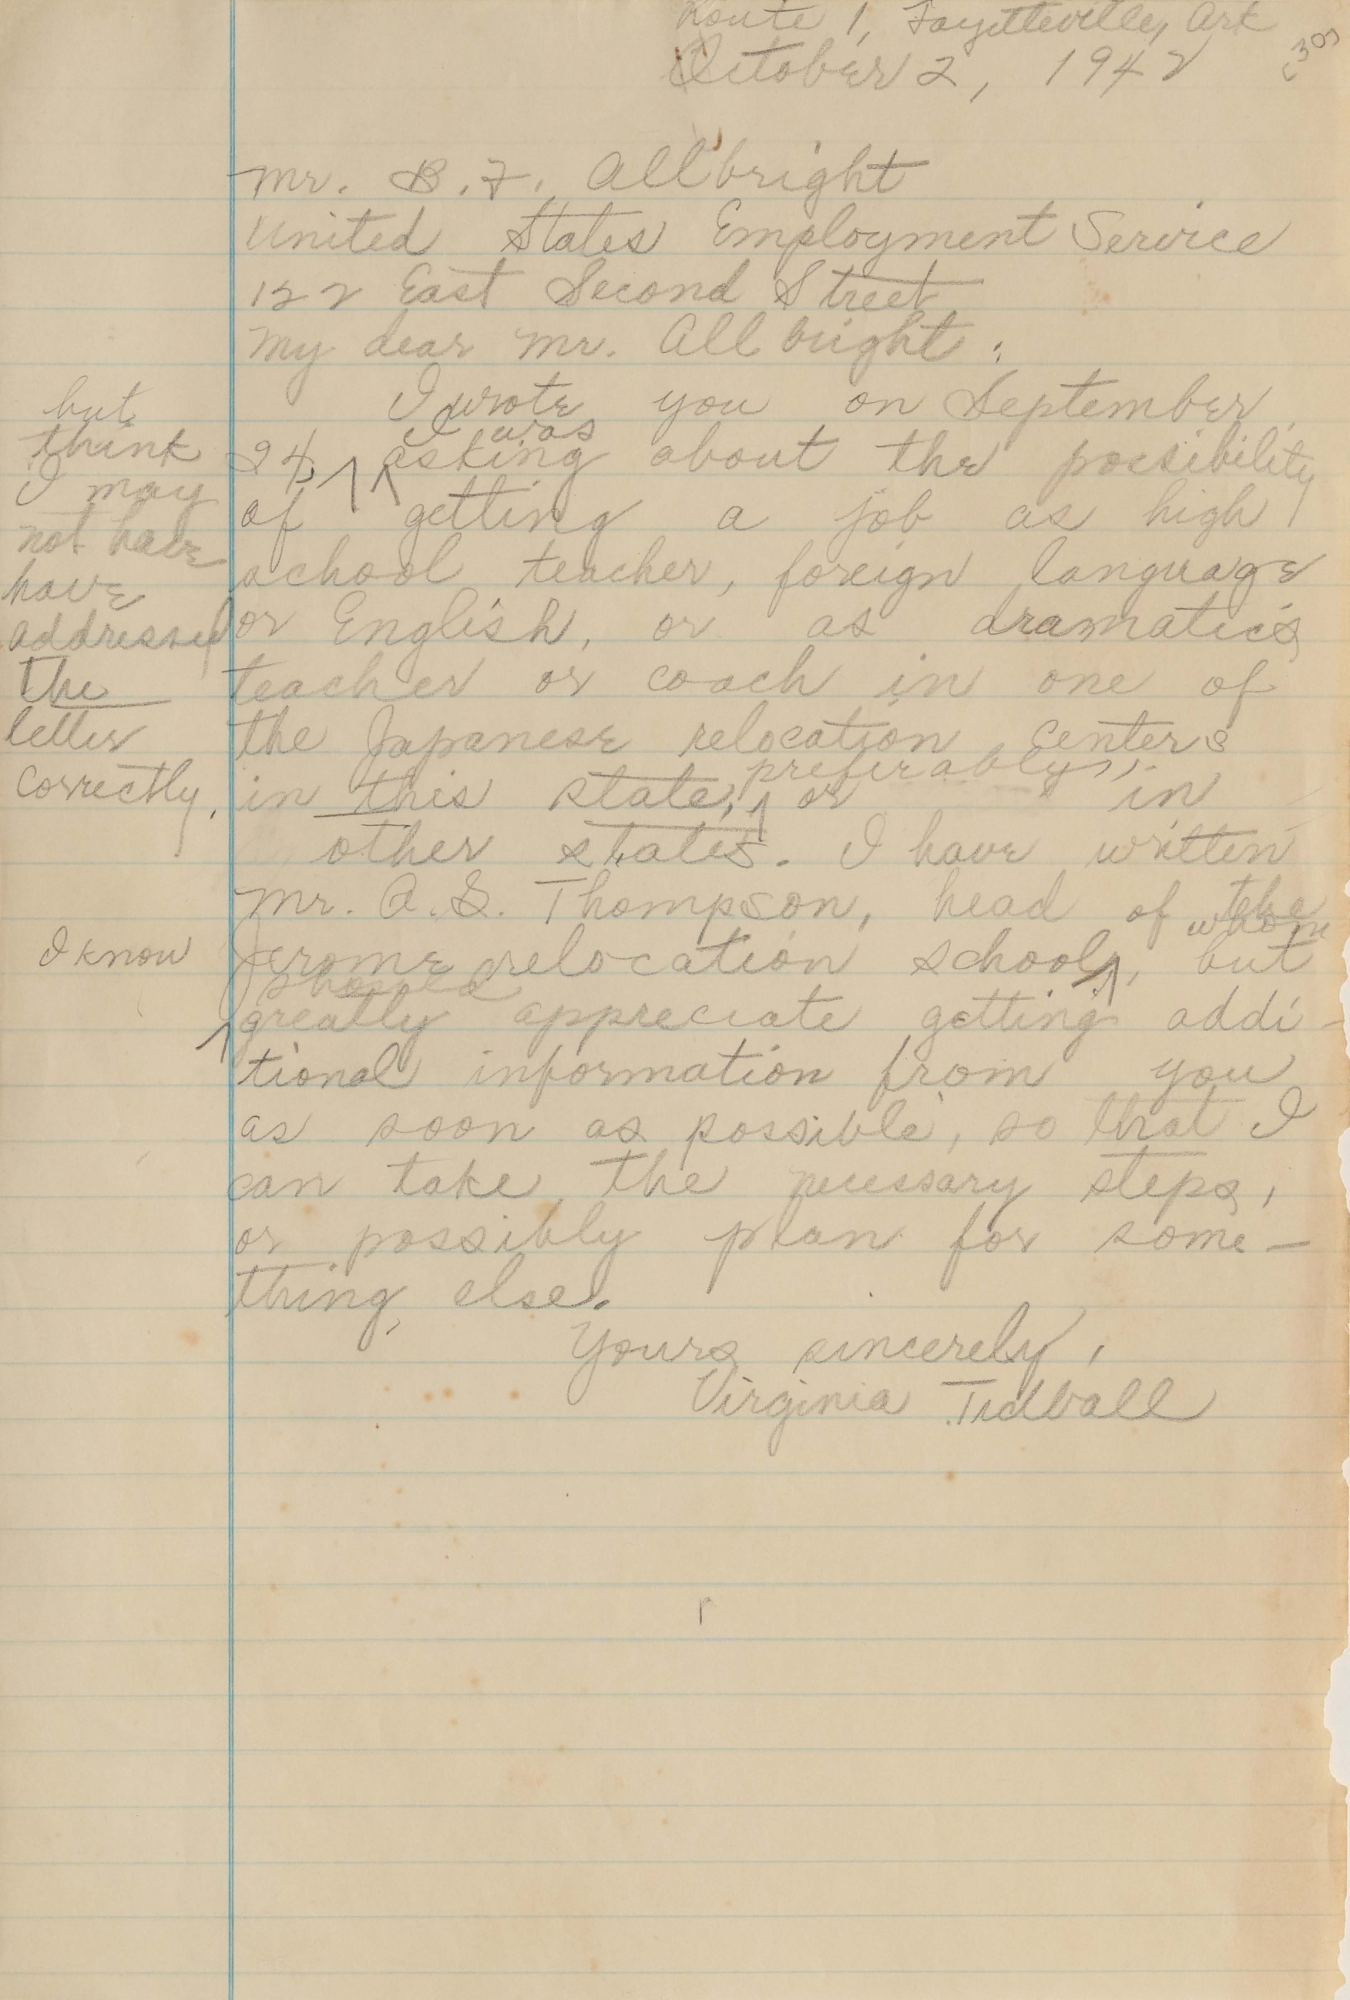 Route 1, Fayetteville, Ark
October 2, 1942
(30)
Mr. B. F. Allbright
United States Employment Service
122 East Second Street
My dear Mr. Allbright:
I wrote you on September
I was
24, asking about the possibility
but
think
I may
not have
have
addressed
the
letter
correctly.
of getting a job as high
school teacher, foreign language
or English, or as dramatics
teacher or coach in one of
the Japanese relocation centers
preferably,
in this state, or in
other states. I have written
Mr. A. G. Thompson, head of the
whom
Jerome relocation school, but
I know
should
greatly appreciate getting addi-
tional information from you
as soon as possible, so that I
can take the necessary steps,
or possibly plan for some-
thing else.
Yours sincerely,
Virginia Tidball